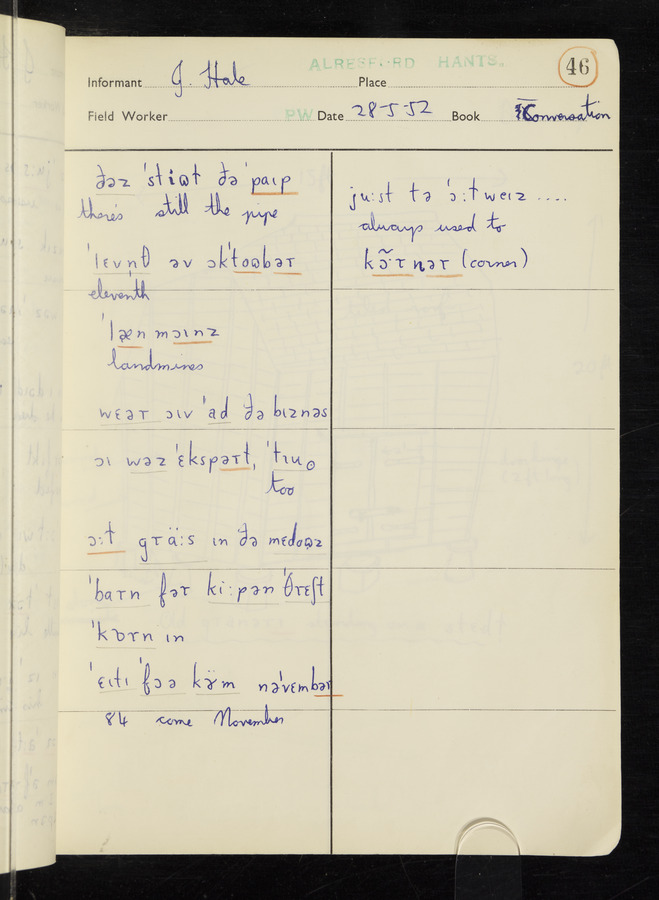 ALRESFORD HANTS.
46
Informant J. Hale Place
Field Worker PW Date 28-5-52 Book Conversation
ðəz ˈstiɷt ðə ˈpaɩp
there's still the pipe
ˈlevn̩θ əv ɔkˈtoɷbəɾ
eleventh
ˈlæn mɔɩnz
landmines
weəɾ ɔɩv ˈad ðə bɪznəs
ɔɩ wəz ˈɛkspəɾt, ˈtɪu
too
ɔ:t gɾä:s ɩn ðə mɛdoɷz
ˈbaɾn fəɾ ki:pən θɾɛʃt
ˈkɒɾn ɩn
ˈɛɩtɩ ˈfɔə kɤ̈m nəˈvɛmbəɾ
84 come November
ju:st tə ˈɔ:tweɪz ....
always used to
kɔ̃·ɾnəɾ (corner)